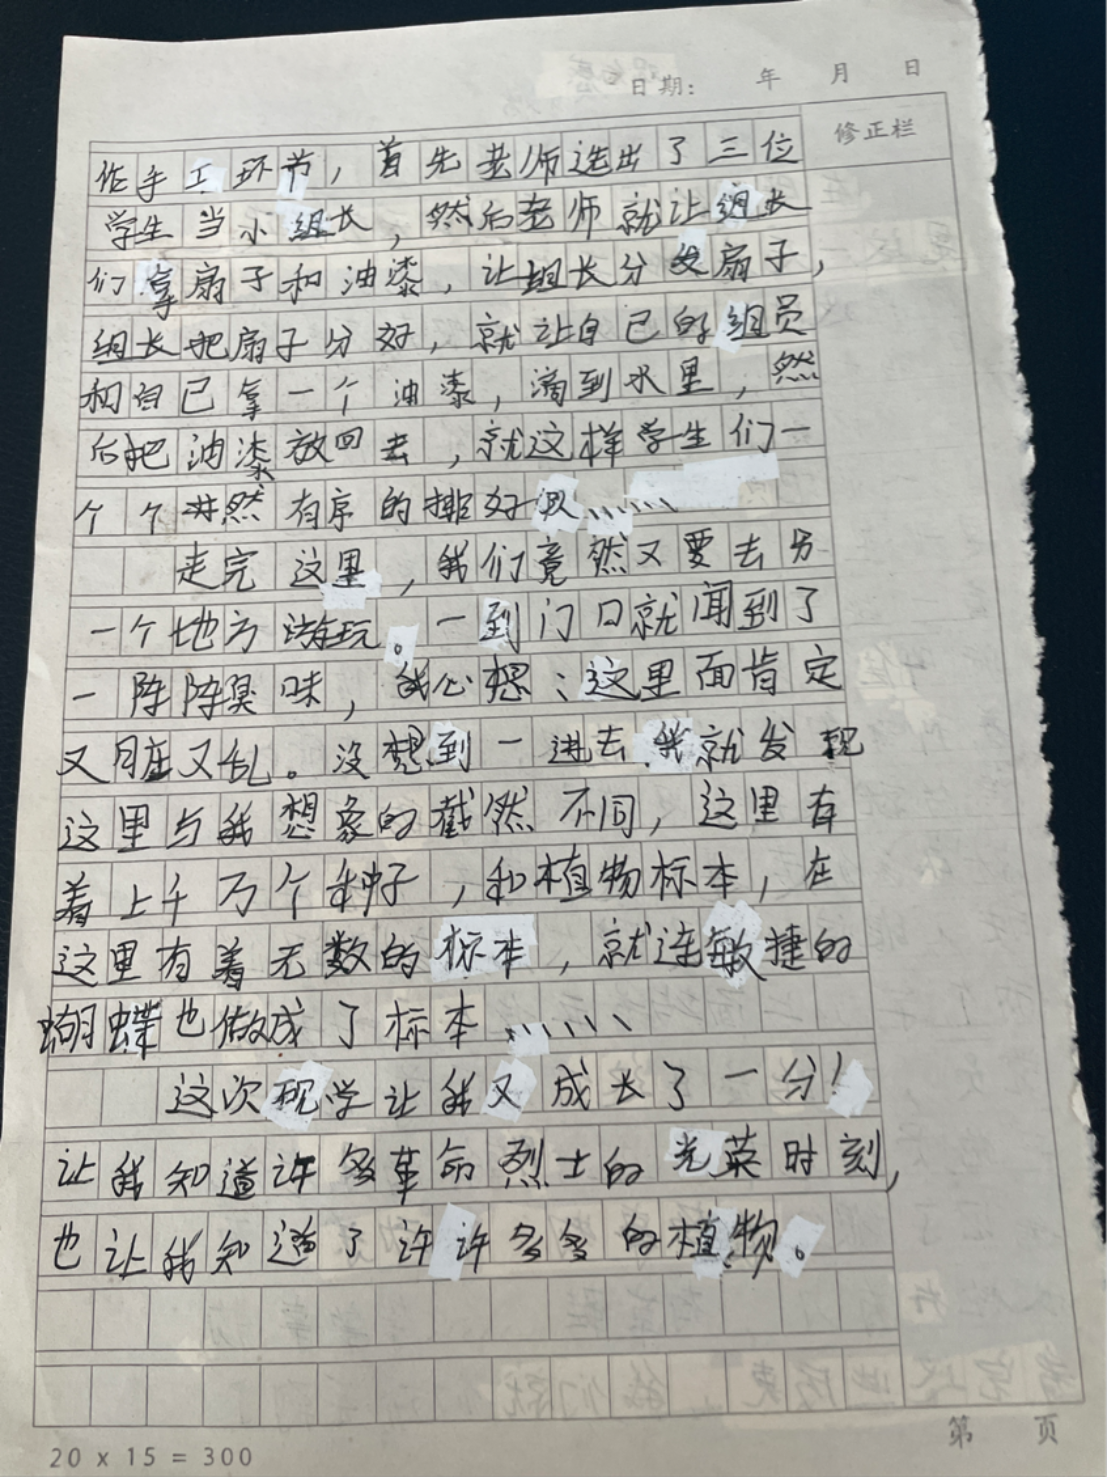 日期： 年 月 日
修正栏
作手工环节，首先老师选出了三位
学生当小组长，然后老师就让组长
们拿扇子和油漆，让组长分发扇子，
组长把扇子分好，就让自己的组员
和自己拿一个油漆，滴到水里，然
后把油漆放回去，就这样学生们一
个个井然有序的排好队、、、、、、
走完这里，我们竟然又要去另
一个地方游玩。一到门口就闻到了
一阵阵臭味，我心想：这里面肯定
又脏又乱。没想到一进去我就发现
这里与我想象的截然不同，这里有
着上千万个种子，和植物标本，在
这里有着无数的标本，就连敏捷的
蝴蝶也做成了标本、、、、、、
这次研学让我又成长了一分！
让我知道许多革命烈士的光荣时刻，
也让我知道了许许多多的植物。
第 页
20 x 15 = 300